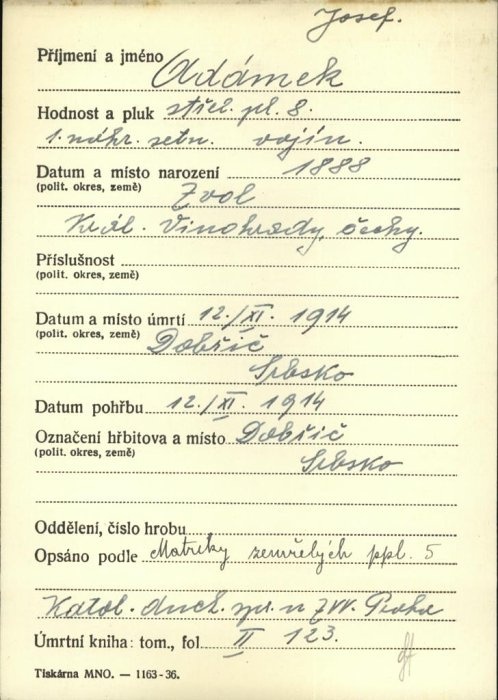 Josef.
Příjmení a jméno Adámek
Hodnost a pluk střel. pl. 8.
1. náhr. setn. vojín.
Datum a místo narození 1888
(polit. okres, země) Zvol
Král. Vinohrady, Čechy.
Příslušnost
(polit. okres, země)
Datum a místo úmrtí 12./XI. 1914
(polit. okres, země) Dobřič
Srbsko
Datum pohřbu 12./XI. 1914
Označení hřbitova a místo Dobřič
(polit. okres, země) Srbsko
Oddělení, číslo hrobu
Opsáno podle Matriky zemřelých ppl. 5
Katol. duch. spr. u ZVV. Praha
Úmrtní kniha: tom., fol. II 123.
Tiskárna MNO. — 1163-36.